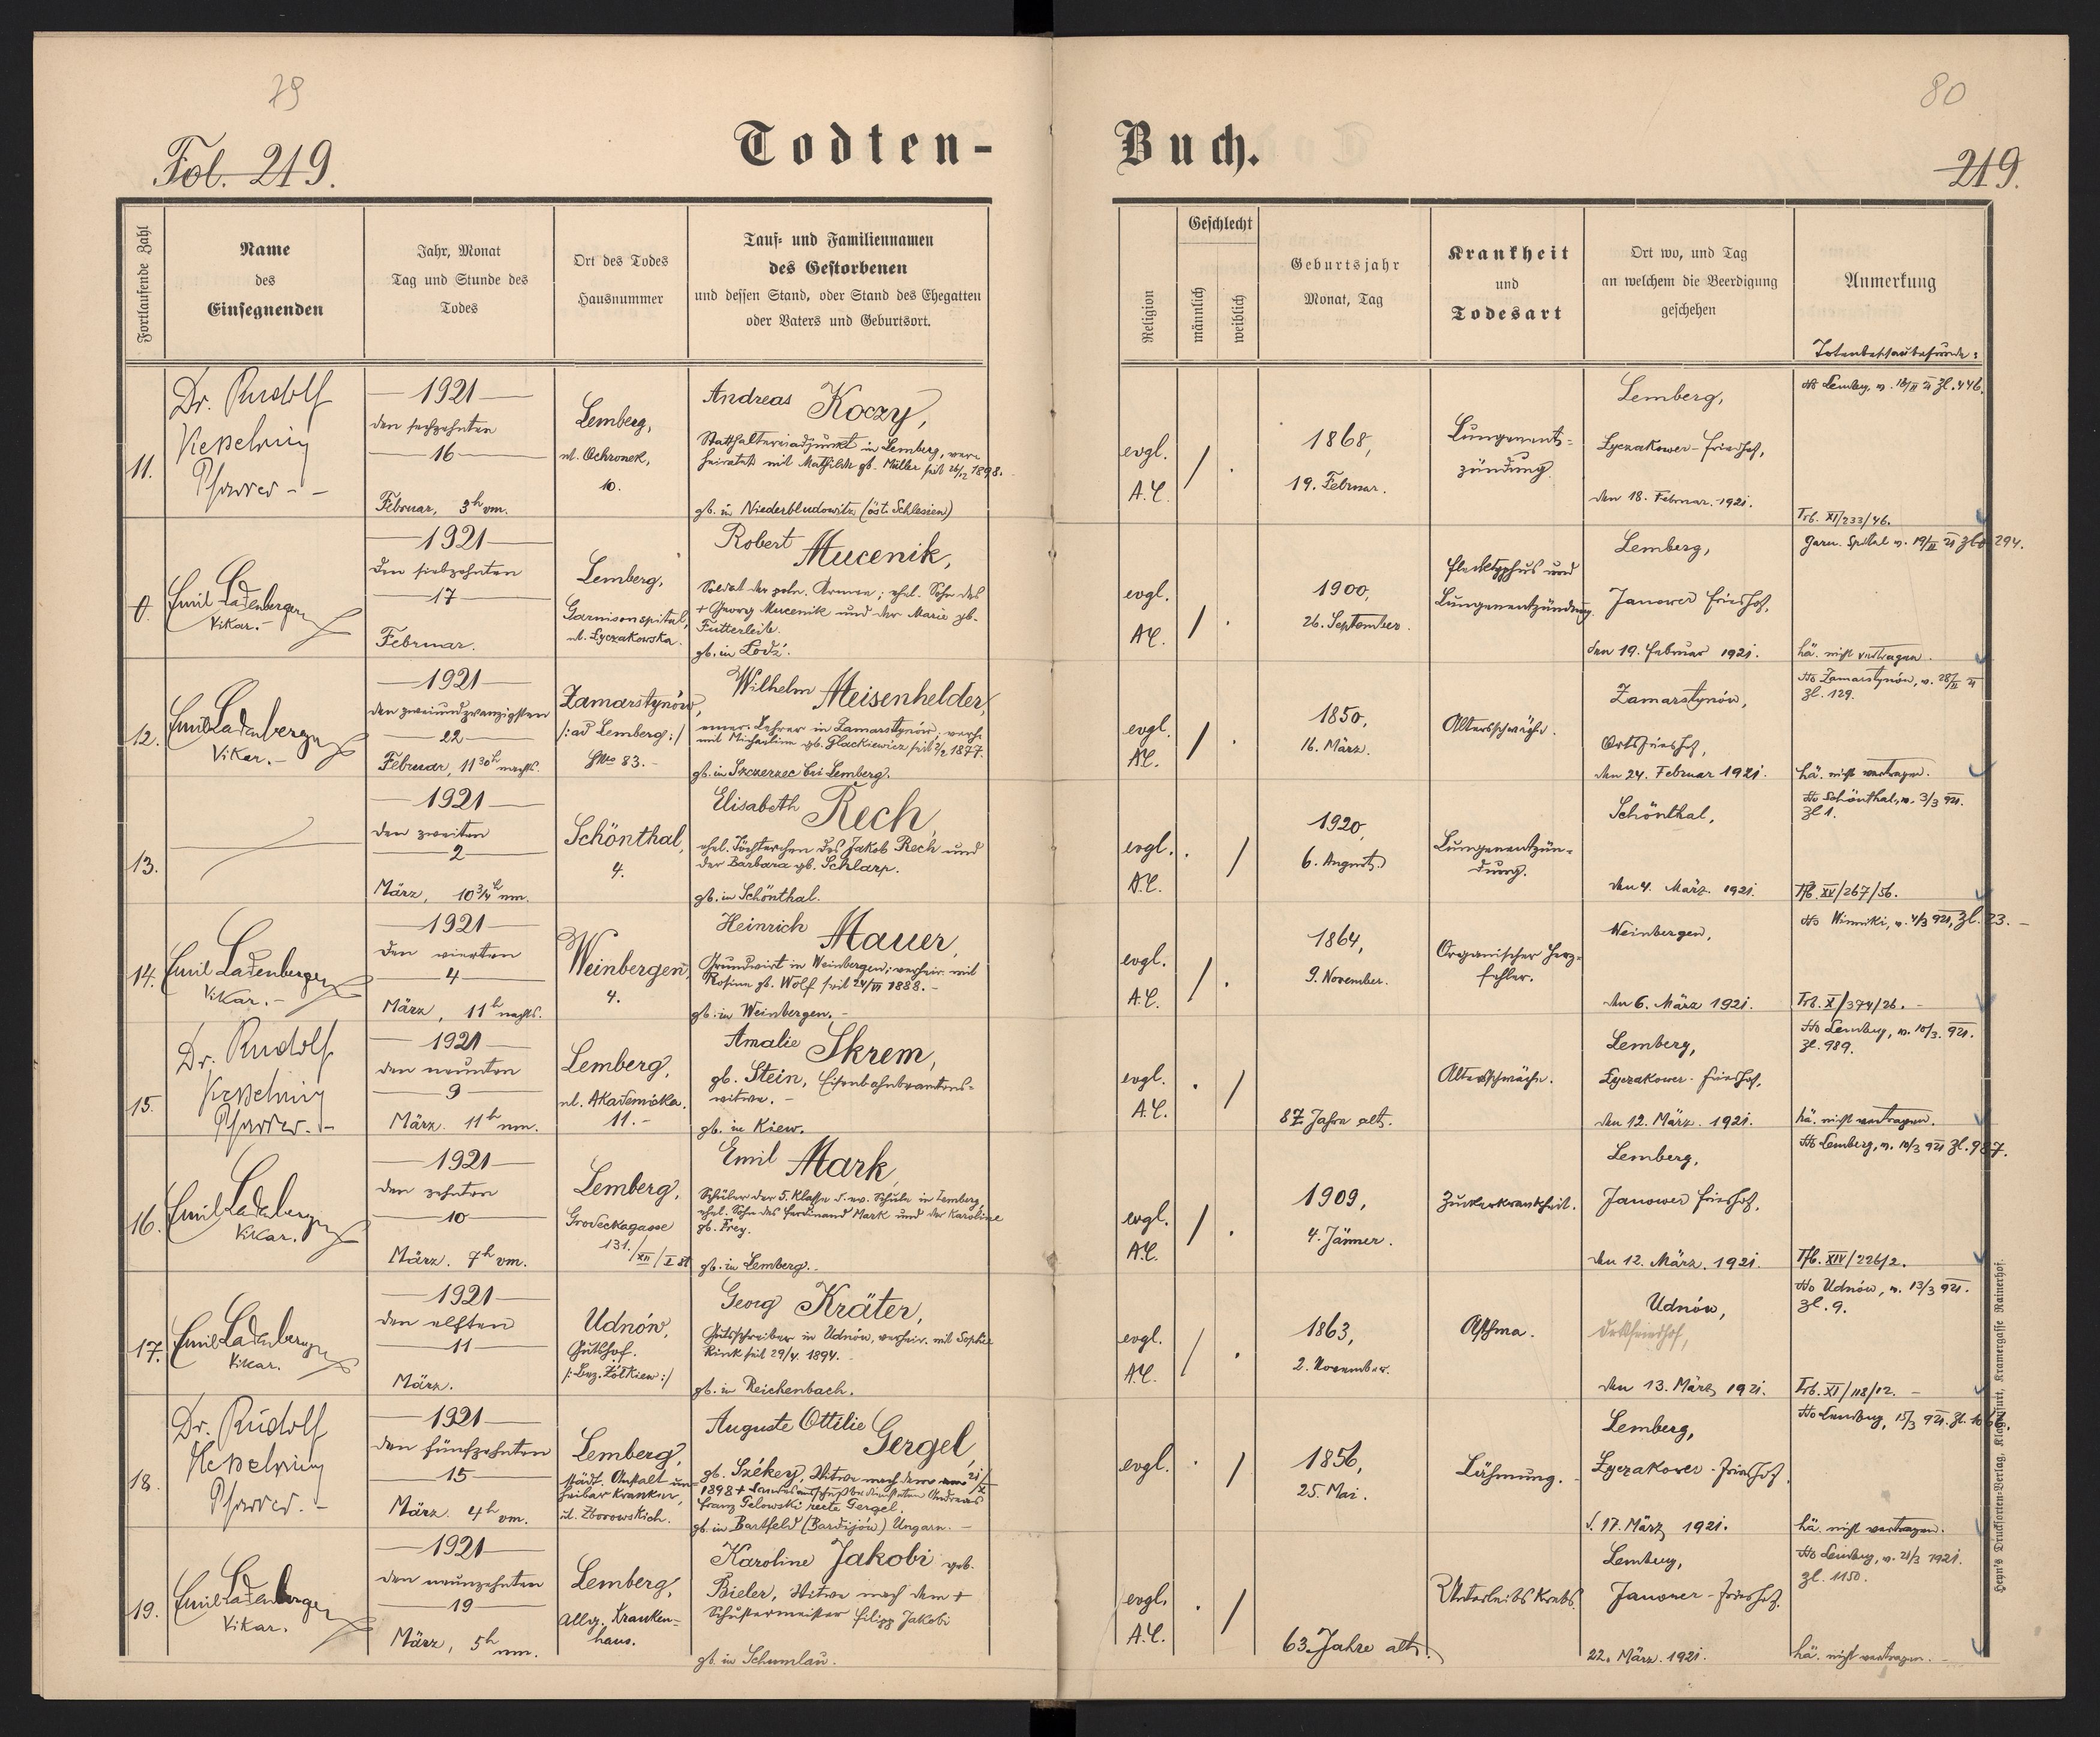 79
Fol. 219.
Todten-
Fortlaufende Zahl
Name
des
Einsegnenden
Jahr, Monat
Tag und Stunde des
Todes
Ort des Todes
Hausnummer
Tauf- und Familiennamen
des Gestorbenen
und dessen Stand, oder Stand des Ehegatten
oder Vaters und Geburtsort.
11.
Dr. Rudolf
Kesselring
Pfarrer
1921
den sechzehnten
16
Februar, 3h vm.
Lemberg,
ul. Ochronek,
10.
Andreas Koczy,
Statthaltereiadjunkt in Lemberg, ver-
heiratet mit Mathilde gb. Müller seit 26/12 1898.
gb. in Niederbludowitz (öst. Schlesien)
0.
Emil Ladenberger
Vikar.
1921
den siebzehnten
17
Februar.
Lemberg,
Garnisonspital,
ul. Lyczakowska.
Robert Mucenik,
Soldat der poln. Armee; ehel. Sohn des
+ Georg Mucenik und der Marie gb.
Futterleib.
gb. in Lodź.
12.
Emil Ladenberger
Vikar.
1921
den zweiundzwanzigsten
22
Februar, 11 30h nachts.
Zamarstynów,
/:ad Lemberg:/
GNo 83.
Wilhelm Meisenhelder,
emer. Lehrer in Zamarstynów, verh.
mit Michaeline gb. Glackiewicz seit 2/2 1877.
gb. in Szczerzec bei Lemberg.
13.
1921
den zweiten
2
März, 10 3/4h nm.
Schönthal,
4.
Elisabeth Rech,
ehel. Töchterchen des Jakob Rech und
der Barbara gb. Schlarp.
gb. in Schönthal.
14.
Emil Ladenberger
Vikar.
1921
den vierten
4
März, 11h nachts.
Weinbergen,
4.
Heinrich Mauer,
Grundwirt in Weinbergen; verheir. mit
Rosina gb. Wolf seit 24/VI 1888.
gb. in Weinbergen.
15.
Dr. Rudolf
Kesselring
Pfarrer.
1921
den neunten
9
März. 11h nm.
Lemberg,
ul. Akademicka.
11.
Amalie Skrem,
gb. Stein, Eisenbahnbeamtens-
witwe.
gb. in Kiew.
16.
Emil Ladenberger
Vikar.
1921
den zehnten
10
März. 7h vm.
Lemberg,
Grodeckagasse
131./XII/I St
Emil Mark,
Schüler der 5. Klasse d. ev. Schule in Lemberg,
ehel. Sohn des Ferdinand Mark und der Karoline
gb. Frey.
gb. in Lemberg.
17.
Emil Ladenberger
Vikar.
1921
den elften
11
März.
Udnów,
Gutshof.
/:Bez. Żółkiew:/
Georg Kräter,
Gutsschreiber in Udnów, verheir. mit Sophie
Rink seit 29/4. 1894.
gb. in Reichenbach.
18.
Dr. Rudolf
Kesselring
Pfarrer.
1921
den fünfzehnten
15
März. 4h vm.
Lemberg,
städt. Anstalt un-
heilbar Kranker,
ul. Zborowskich.
Auguste Ottilie Gergel,
gb. Székey, Witwe nach dem am 21/X
1898 + Andreas
Franz Gelowski recte Gergel.
gb. in Bartfeld (Bardijów) Ungarn.
19.
Emil Ladenberger
Vikar.
1921
den neunzehnten
19
März, 5h nm.
Lemberg,
Allg. Kranken-
haus.
Karoline Jakobi geb.
Bieler, Witwe nach dem +
Schustermeister Filipp Jakobi
gb. in Schumlau.
80
Buch.
219.
Religion
Geschlecht
männlich
weiblich
Geburtsjahr
Monat, Tag
Krankheit
und
Todesart
Ort wo, und Tag
an welchem die Beerdigung
geschehen
Anmerkung
Totenbeschaubefunde:
evgl.
A.C.
1868,
19. Februar.
Lungenent-
zündung
Lemberg,
Lyczakower-Friedhof,
den 18. Februar. 1921.
Ho Lemberg, v. 18/II 21 Zl. 446.
Trb. XI/233/46.
evgl.
AC.
1900,
26. September.
Flecktyphus und
Lungenentzündung.
Lemberg,
Janower Friedhof,
den 19. Februar 1921.
Garn. Spital v. 19/II 21 Zl. 294.
hä. nicht vertragen.
evgl.
AC.
1850,
16. März.
Altersschwäche.
Zamarstynów,
Ortsfriedhof,
den 24. Februar 1921.
Ho Zamarstynów, v. 28/II 21
Zl. 129.
hä. nicht vertragen.
evgl.
A.C.
1920,
6. August.
Lungenentzün-
dung.
Schönthal,
den 4. März. 1921.
Ho Schönthal, v. 3/3 921.
Zl 1.
Tfb. XV/267/56.
evgl.
A.C.
1864,
9. November.
Organischer Herz-
fehler.
Weinbergen,
den 6. März 1921.
Ho Winniki, v. 4/3 921, Zl. 23.
Trb. X/374/26.
evgl.
A.C.
87 Jahre alt.
Altersschwäche.
Lemberg,
Lyczakower-Friedhof,
den 12. März. 1921.
Ho Lemberg, v. 10/3. 921.
Zl. 989.
hä. nicht vertragen.
evgl.
A.C.
1909,
4. Jänner.
Zuckerkrankheit.
Lemberg,
Janower Friedhof,
den 12. März. 1921.
Ho Lemberg, v. 10/3 921 Zl. 987.
Tfb. XIV/226/2.
evgl.
A.C.
1863,
2. November.
Asthma.
Udnów,
Ortsfriedhof,
den 13. März 1921.
Ho Udnów, v. 13/3 921.
Zl. 9.
Trb. XI/118/12.
evgl.
1856,
25. Mai.
Lähmung.
Lemberg,
Lyczakower-Friedhof.
d. 17. März 1921.
Ho Lemberg, 15/3 921. Zl. 1066.
hä. nicht vertragen.
evgl.
A.C.
63 Jahre alt.
Unterleibskrebs.
Lemberg,
Janower-Friedhof.
22. März. 1921.
Ho Lemberg, v. 21/3 1921.
Zl. 1150.
hä. nicht vertragen.
Heyn's Drucksorten-Verlag, Klagenfurt, Kramergasse Rainerhof.